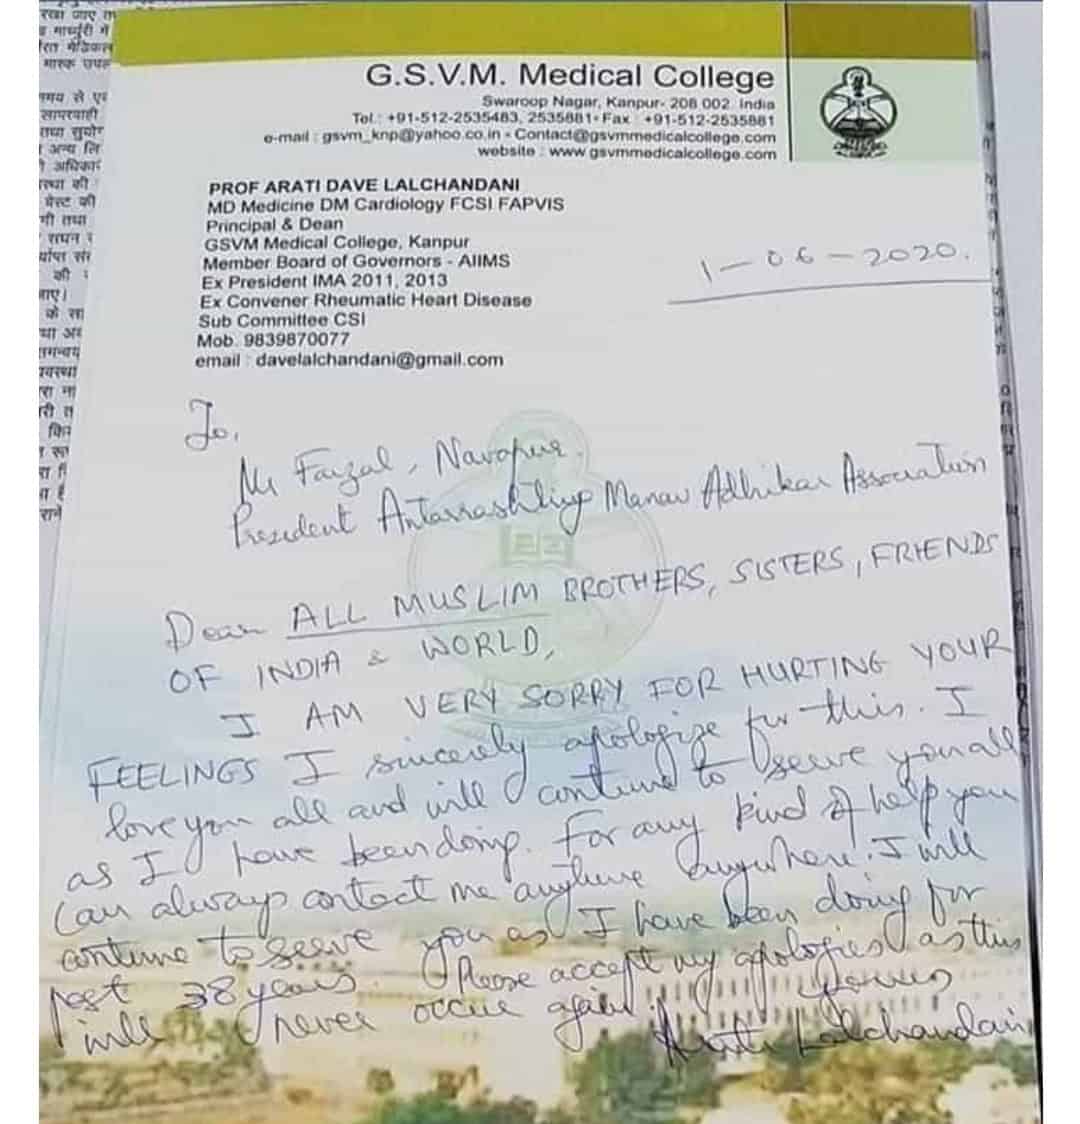 रखा जाए
मास्क
समय से
लापरवाही
तथा
अन्य
जाए।
G.S.V.M. Medical College
Swaroop Nagar, Kanpur- 208 002. India
Tel.: +91-512-2535483, 2535881- Fax : +91-512-2535881
e-mail : gsvm_knp@yahoo.co.in - Contact@gsvmmedicalcollege.com
website : www.gsvmmedicalcollege.com
PROF ARATI DAVE LALCHANDANI
MD Medicine DM Cardiology FCSI FAPVIS
Principal & Dean
GSVM Medical College, Kanpur
Member Board of Governors - AIIMS
Ex President IMA 2011, 2013
Ex Convener Rheumatic Heart Disease
Sub Committee CSI
Mob. 9839870077
email : davelalchandani@gmail.com
1-06-2020.
To,
Mr Faizal, Navapur.
President Antarrashtriya Manav Adhikar Association
Dear ALL MUSLIM BROTHERS, SISTERS, FRIENDS
OF INDIA & WORLD,
I AM VERY SORRY FOR HURTING YOUR
FEELINGS I sincerely apologize for this. I
love you all and will continue to serve you all
as I have been doing. For any kind of help you
can always contact me anytime anywhere. I will
continue to serve you as I have been doing for
past 38 years. Please accept my apologies as this
will never occur again. Yours
Arati Lalchandani